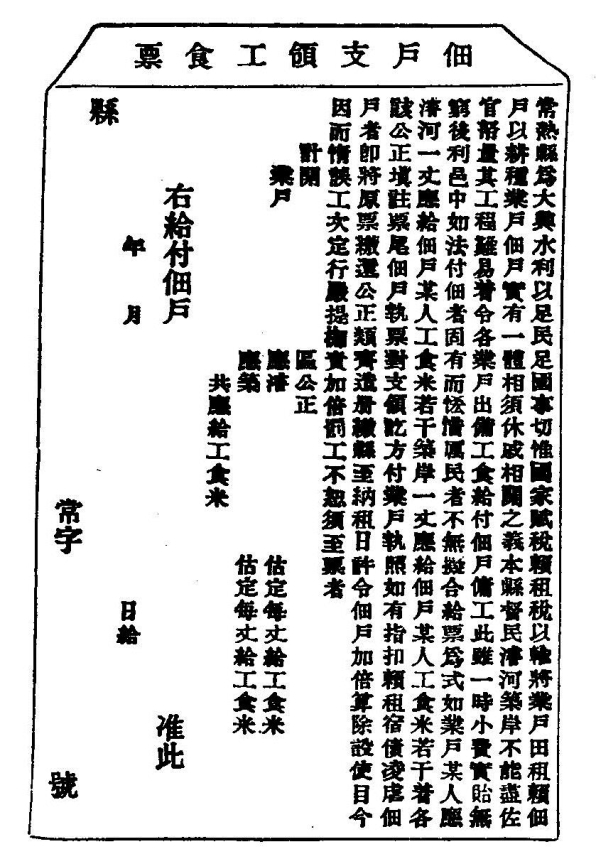 佃戶支領工食票
常熟縣爲大興水利以足民足國事切惟國家賦稅賴租稅以輸將業戶田租賴佃
戶以耕種業戶佃戶實有一體相須休戚相關之義本縣督民濬河築岸不能盡佐
官帑量其工程難易着令各業戶出備工食給付佃戶傭工此雖一時小費實貽無
窮後利邑中如法付佃者固有而恡惜厲民者不無擬合給票爲式如業戶某人應
濬河一丈應給佃戶某人工食米若干築岸一丈應給佃戶某人工食米若干着各
該公正填註票尾佃戶執票對支領訖方付業戶執照如有指扣賴租宿債凌虐佃
戶者卽將原票繳還公正類齊造册繳縣至納租日許令佃戶加倍算除設使目今
因而惰誤工次定行嚴提搊實加倍罰工不恕須至票者
計開
業戶 區公正
應濬 估定每丈給工食米
應築 估定每丈給工食米
共應給工食米
右給付佃戶 准此
年 月 日給
縣 常字 號